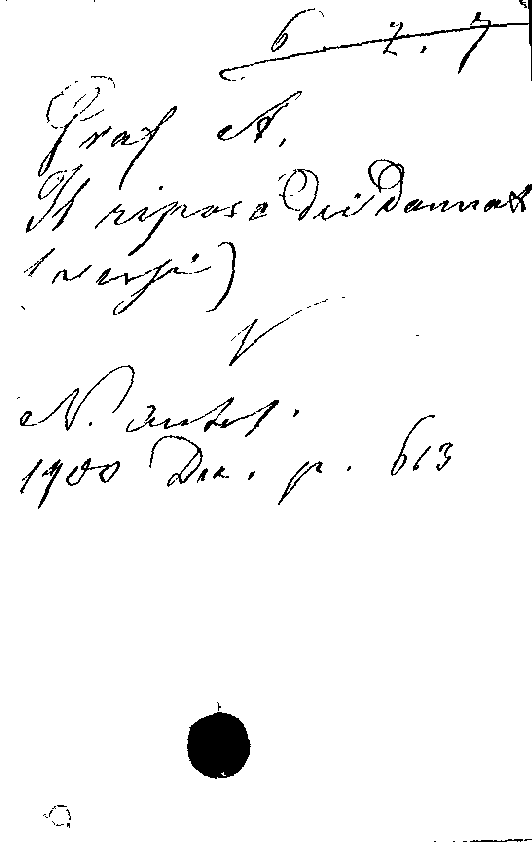 6 2.7
Graf A.
Il riposo dei Dannat
(versi)
V
N. antol.
1900 Dec. p. 613